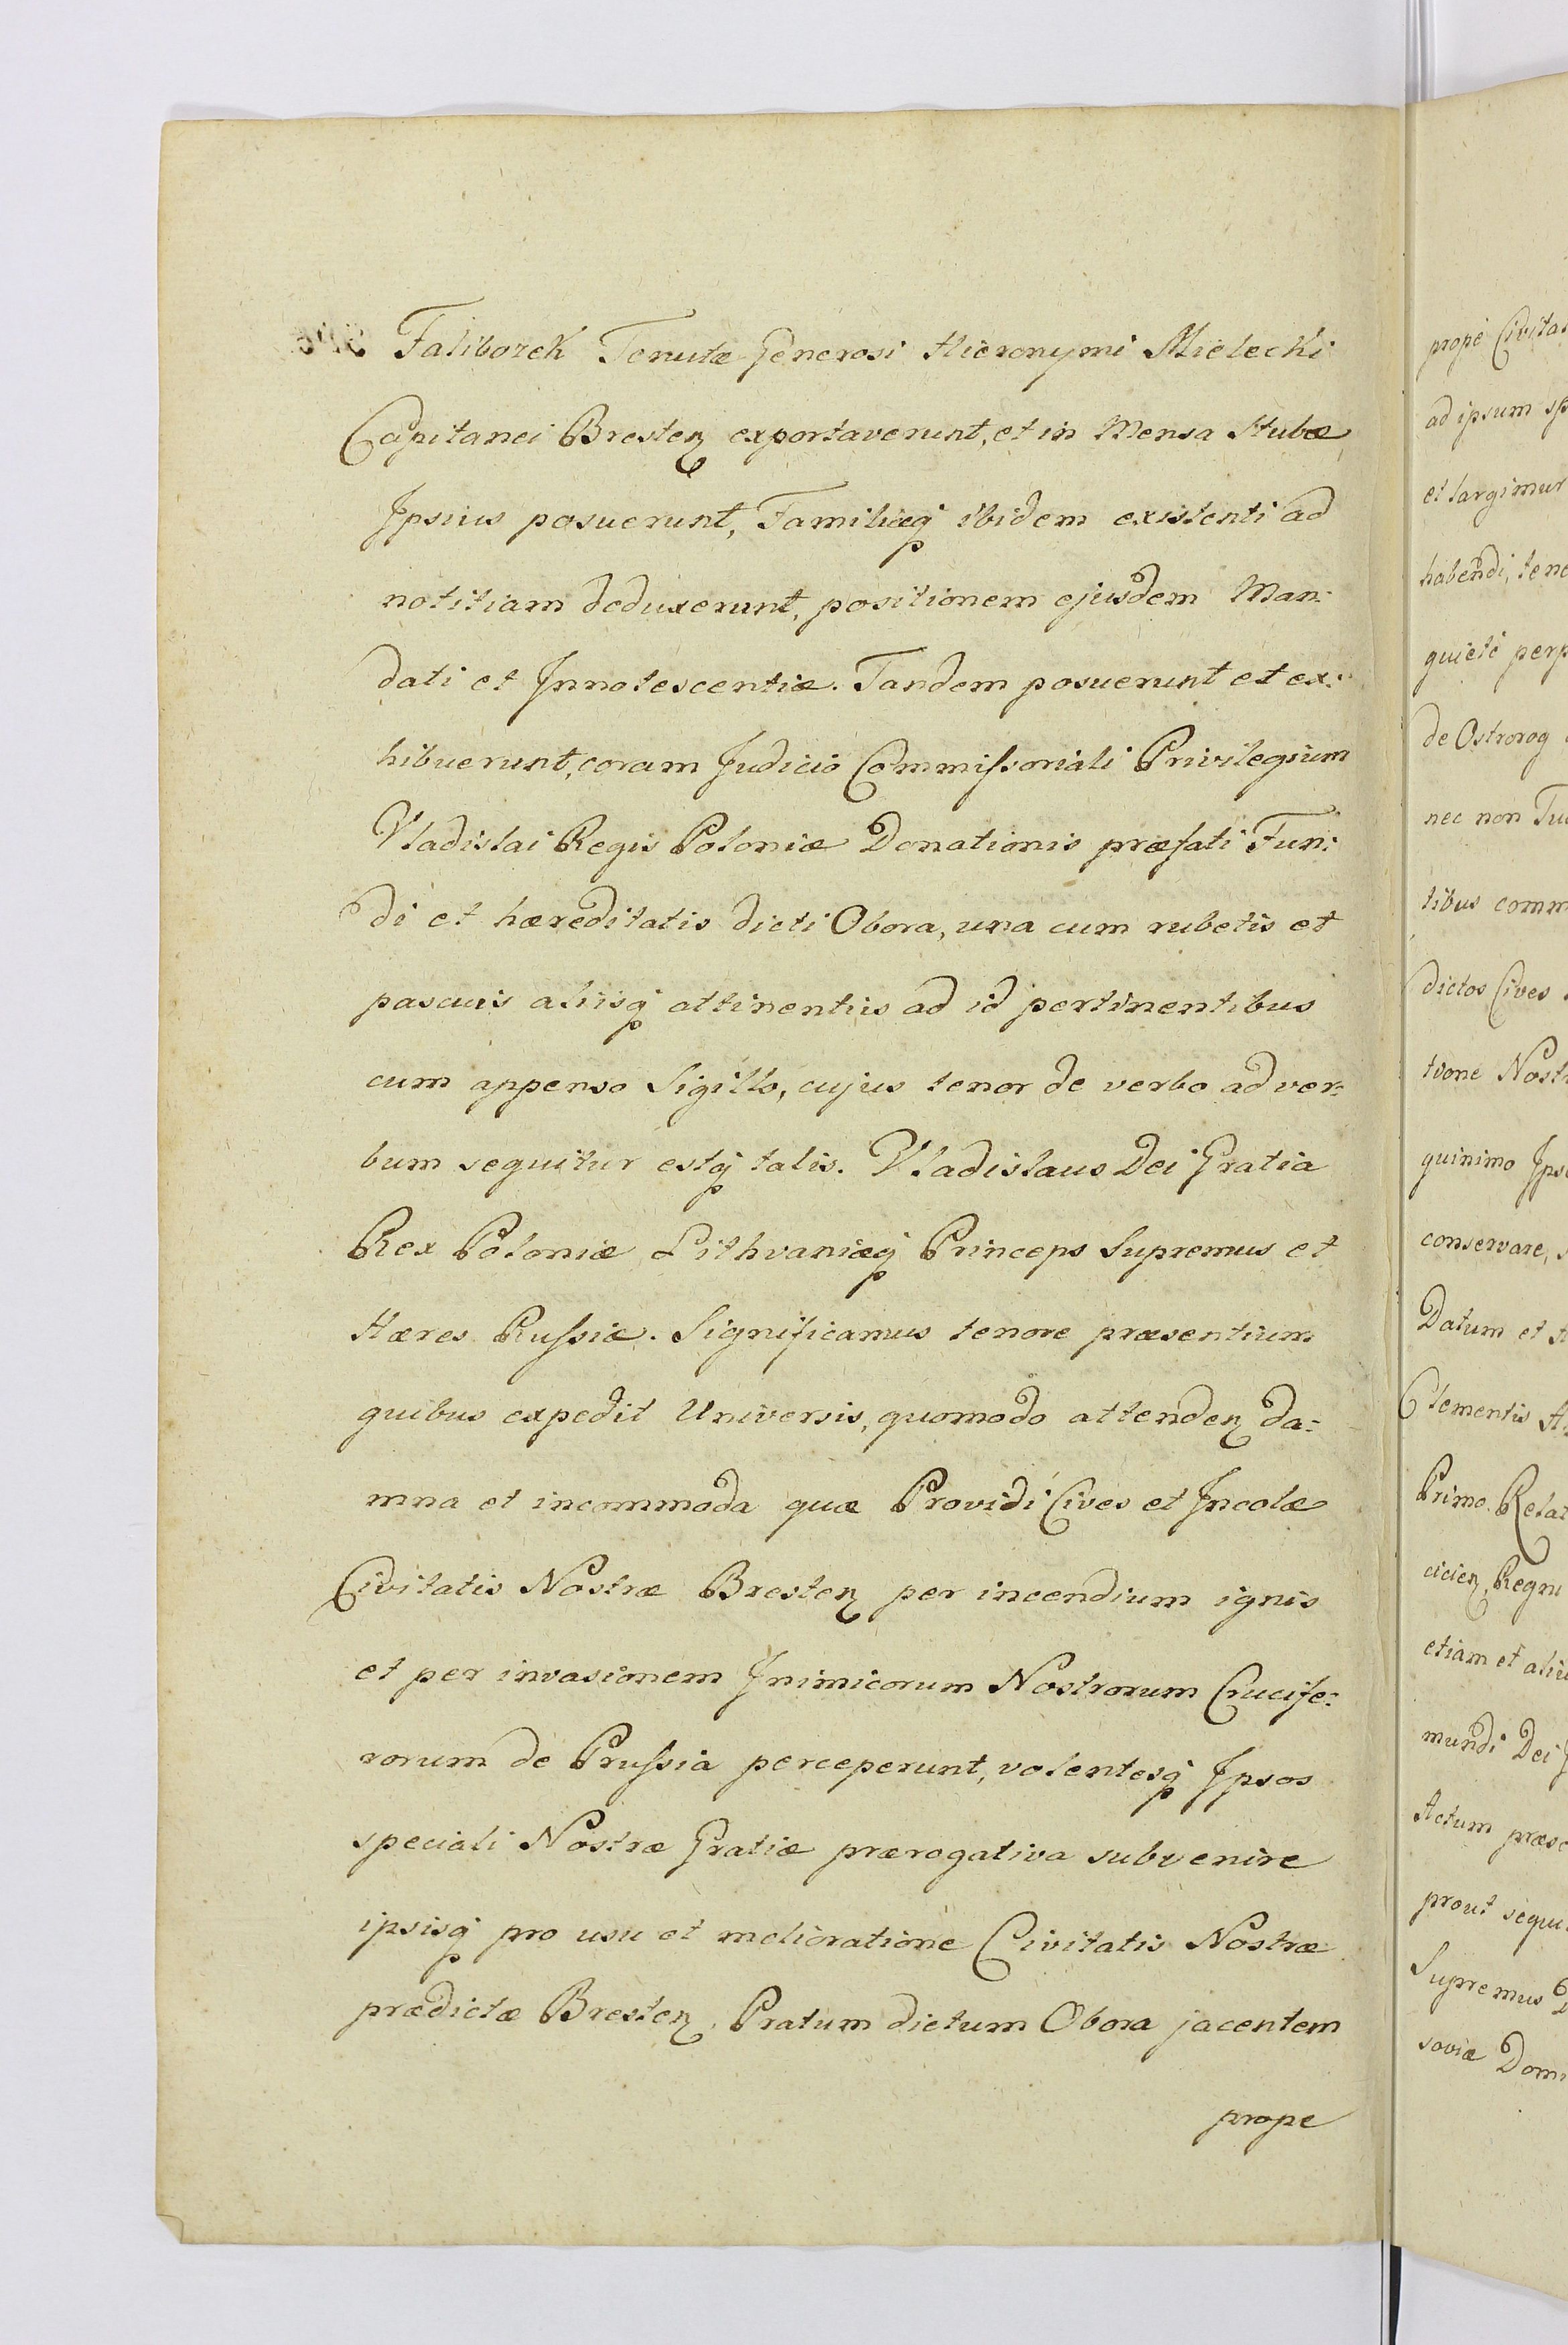 Faliborek Tenutæ Generosi Hieronymi Mielecki
Capitanei Bresteņ exportaverunt, et in Mensa Stubæ
Jpsius posuerunt, Familiæq̢ ibidem existenti ad
notitiam deduxerunt, positionem ejusdem Man:
dati et Jnnotescentiæ. Tandem posuerunt et ex:
hibuerunt, coram Judicio Commiſsoriali Privilegium
Vladislai Regis Poloniæ Donationis præfati Fun:
di et hæreditatis dicti Obora, una cum rubetis et
pascuis aliisq̢ attinentiis ad id pertinentibus
cum appenso Sigillo, cujus tenor de verbo ad ver:
bum sequitur estq̢ talis. Vladislaus Dei Gratia
Rex Poloniæ Lithvaniæq̢ Princeps Supremus et
Hæres Ruſsiæ. Significamus tenore præsentium
quibus expedit Universis, quomodo attendeņ da:
mna et incommoda quæ Providi Cives et Jncolæ
Civitatis Nostræ Bresteņ per incendium ignis
et per invasionem Jnimicorum Nostrorum Crucife:
rorum de Pruſsia perceperunt, volentesq̢ Jpsos
speciali Nostræ Gratiæ prærogativa subvenire
ipsisq̢ pro usu et melioratione Civitatis Nostræ
prædictæ Bresteņ, Pratum dictum Obora jacentem
prope
prope Civita
ad ipsum sp
et largimur
habendi, tene
quiete perp
de Ostrorog
nec non Tu
tibus comm
dictos Cives
tione Nostr
quinimo Jps
conservare, s
Datum et A
Clementis A
Primo. Relat
cicieņ, Regni
etiam et alii
mundi Dei G
Actum præse
prout sequi
Supremus D
soviæ Domi